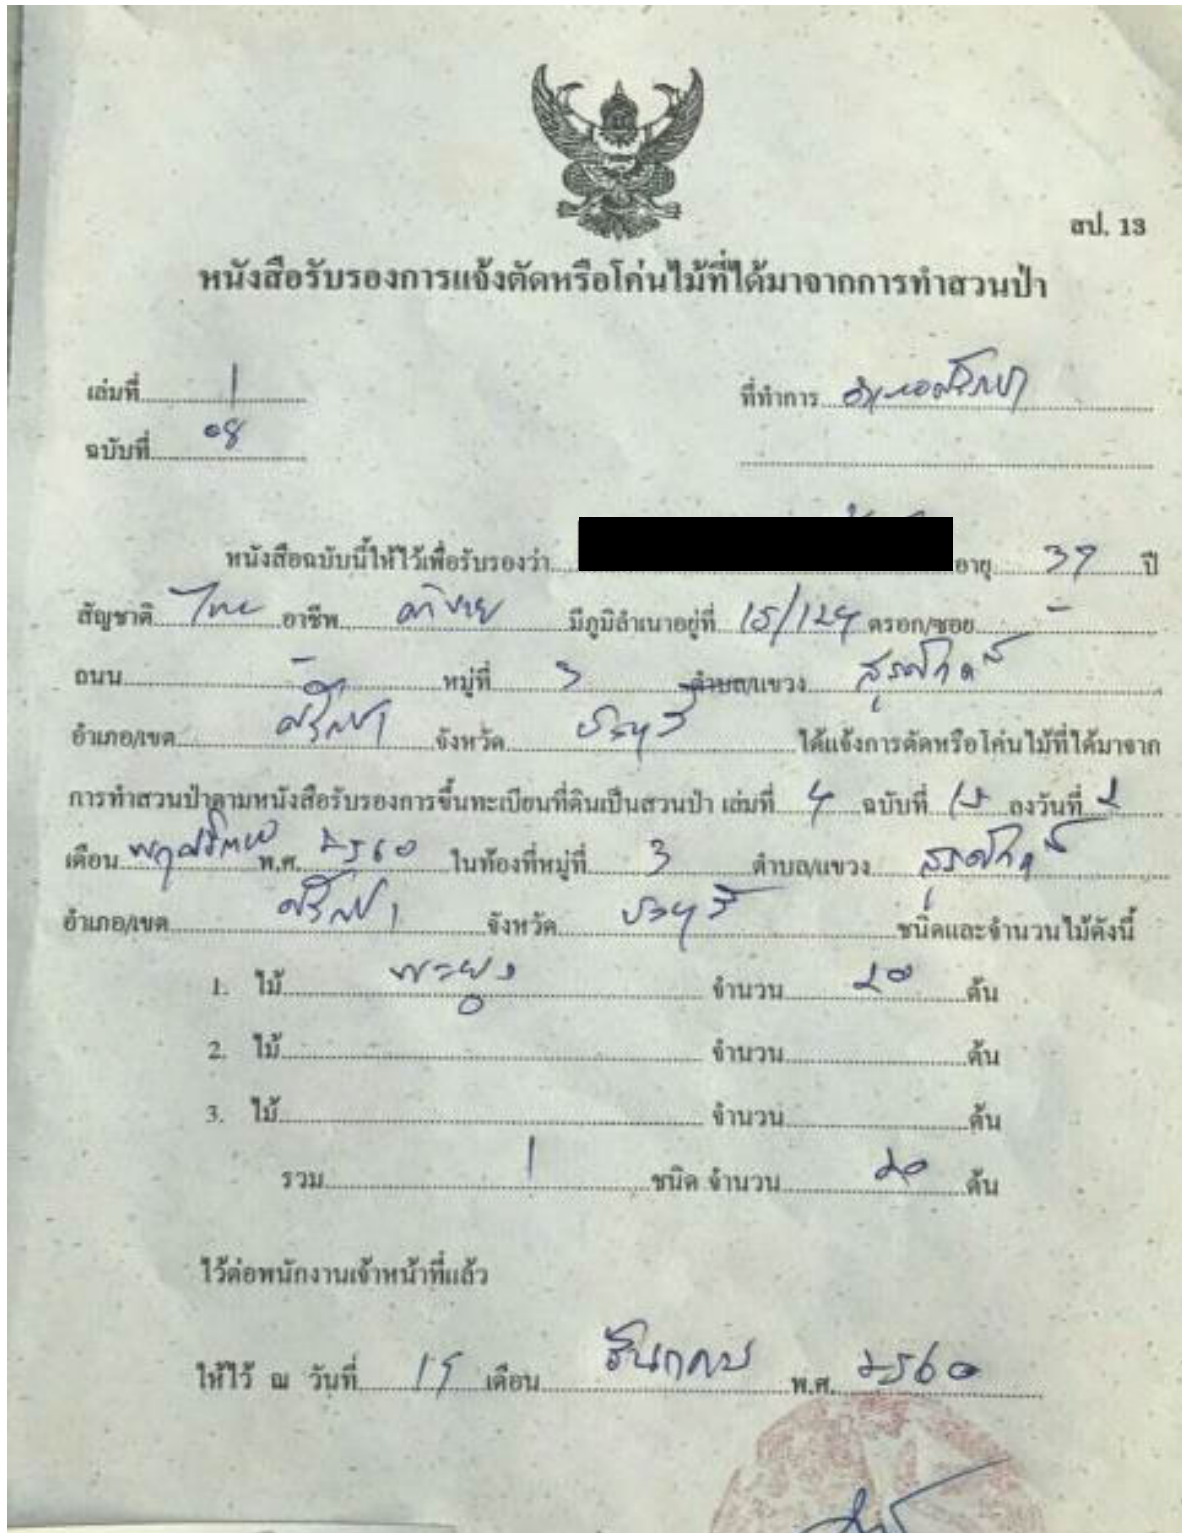 สป. 13
หนังสือรับรองการแจ้งตัดหรือโค่นไม้ที่ได้มาจากการทำสวนป่า
เล่มที่ 1 ที่ทำการ อำเภอศรีราชา
ฉบับที่ 08
หนังสือฉบับนี้ให้ไว้เพื่อรับรองว่า อายุ 37 ปี
สัญชาติ ไทย อาชีพ ค้าขาย มีภูมิลำเนาอยู่ที่ 15/124 ตรอก/ซอย -
ถนน - หมู่ที่ 3 ตำบล/แขวง สุรศักดิ์
อำเภอ/เขต ศรีราชา จังหวัด ชลบุรี ได้แจ้งการตัดหรือโค่นไม้ที่ได้มาจาก
การทำสวนป่าตามหนังสือรับรองการขึ้นทะเบียนที่ดินเป็นสวนป่า เล่มที่ 4 ฉบับที่ ลงวันที่ 2
เดือน พฤศจิกายน พ.ศ. 2560 ในท้องที่หมู่ที่ 3 ตำบล/แขวง สุรศักดิ์
อำเภอ/เขต ศรีราชา จังหวัด ชลบุรี ชนิดและจำนวนไม้ดังนี้
1. ไม้ พะยูง จำนวน 20 ต้น
2. ไม้ จำนวน ต้น
3. ไม้ จำนวน ต้น
รวม 1 ชนิด จำนวน 20 ต้น
ไว้ต่อพนักงานเจ้าหน้าที่แล้ว
ให้ไว้ ณ วันที่ 15 เดือน ธันวาคม พ.ศ. 2560